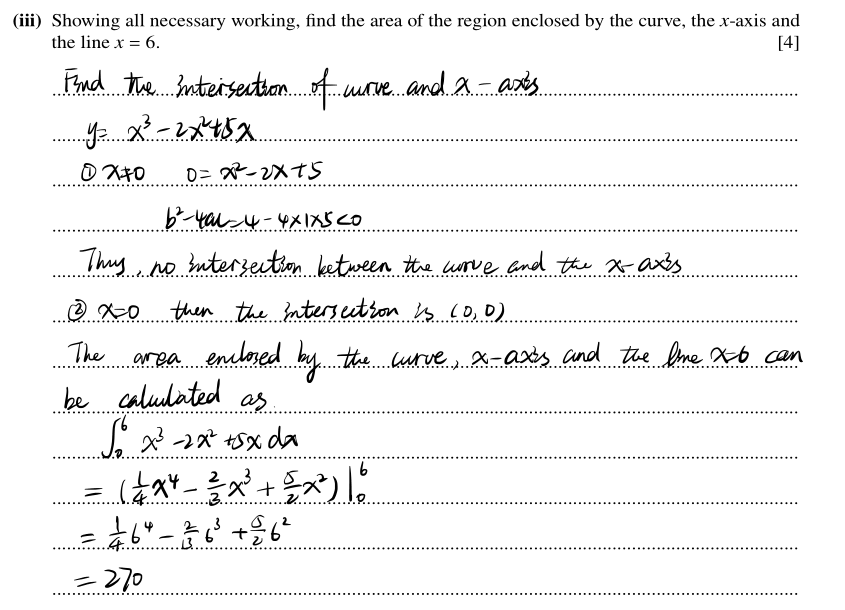 (iii) Showing all necessary working, find the area of the region enclosed by the curve, the x-axis and
the line x = 6. [4]
Find the intersection of curve and x - axis
y= x³ - 2x²+5x
① x≠0 0 = x² - 2x + 5
b² - 4ac = 4 - 4×1×5 < 0
Thus, no intersection between the curve and the x-axis
② x=0 then the intersection is (0, 0)
The area enclosed by the curve, x-axis and the line x=6 can
be calculated as
∫₀⁶ x³ - 2x² + 5x dx
= (1/4 x⁴ - 2/3 x³ + 5/2 x²) |₀⁶
= 1/4 6⁴ - 2/3 6³ + 5/2 6²
= 270